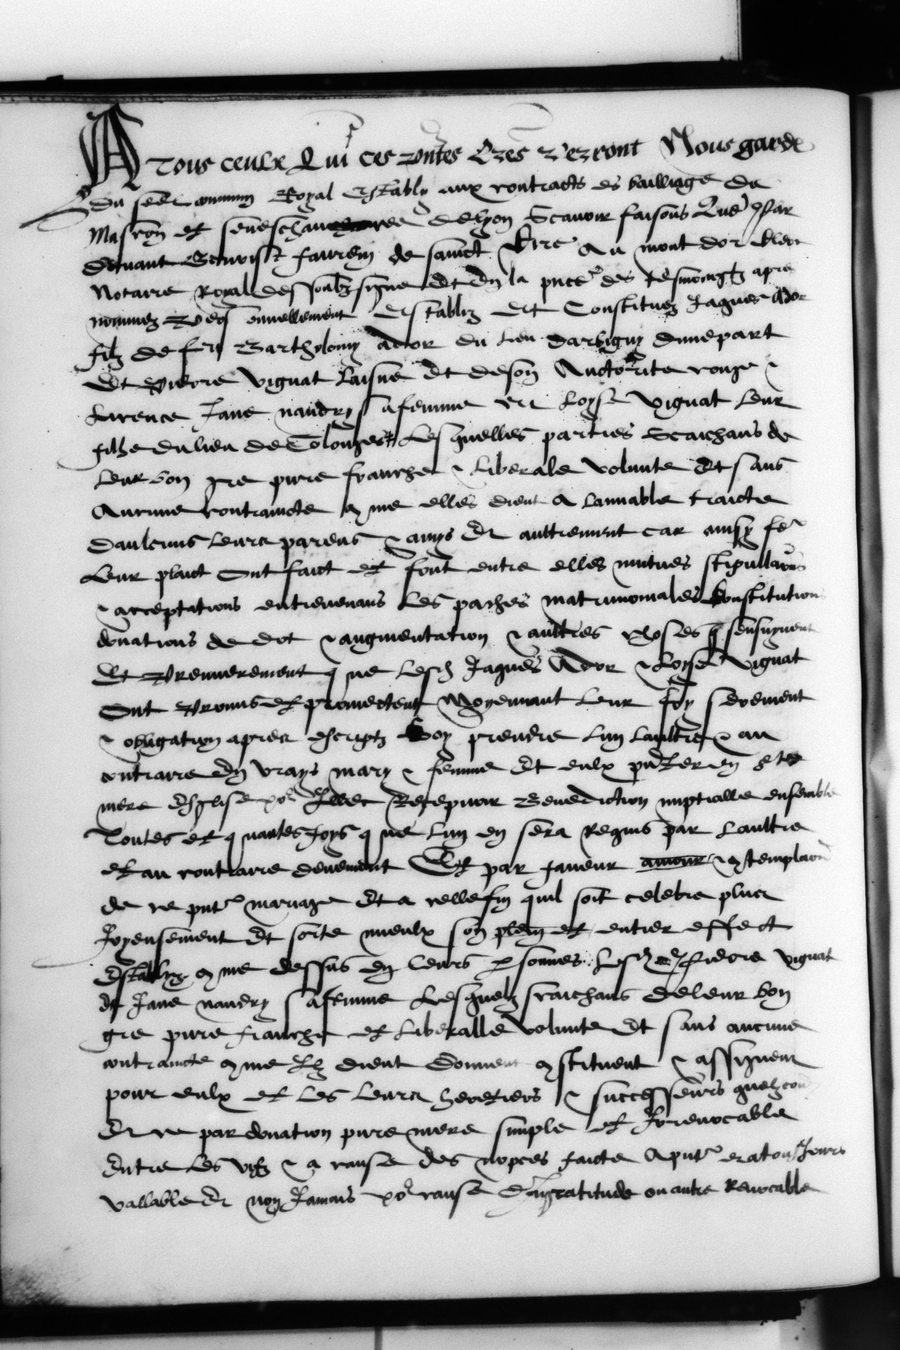 A tous ceulx qui ces pntes lres verront Nous garde
du seel commun Royal estably aux contractz es bailliage de
Mascon et seneschaucee de lyon Scavoir faisons que par
devant Benoist faurein de sainct Cire Au mont dor clerc
Notaire Royal dessoubz signe et en la pnce des tesmoingtz apres
nommez personnellement establiz et Constituez Jaques Ador
filz de feu Barthelomy Ador du lieu darbigny dunepart
Et Pierre Vignat laisne et de son Auctorite conge &
licence Jane nandry sa femme et Loyse Vignat leur
fille du lieu de Colonges Lesquelles parties Scaichans de
leur bon gre pure franche & liberale volunte Et sans
Aucune contraincte come elles dient A lamiable traicte
daulcuns leurs parens & amys et aultrement car ainsy fe
leur plaict Ont faict et font entre elles mutues stipullaons
& acceptations entrevenans les paches matrimoniales Constitution
donations de dot & augmentation & aultres choses q sensuyvent
Et Premierement que lesd Jaques Ador & Loyse Vignat
Ont Promis et promectent Moyennant leur foy serement
& obligation apres escriptz Soy prendre lun laultre & au
contraire en vrays mary & femme Et eulx pnter en ste
mere esglise po Illec Recepvoir Benediction nuptialle ensemble
Toutes et quantesfoys que lun en sera Requis par laultre
et au contraire deuement Et par faveur amour & contemplaon
de ce pnt mariage Et a celle fin quil soit celebre plus
Joyeusement Et sorte mieulx son plein et entier effect
Establiz come dessus en leurs psonnes Lesd Pierre Vignat
et Jane nandry sa femme Lesquelz scaichans de leur bon
gre pure franche et liberalle volunte Et sans aucune
contraincte come ilz dient donnent constituent & assignent
pour eulx et les leurs heretiers & successeurs quelzcon
Et ce par donation pure mere simple et Irrevocable
Entre les vifz & a cause des nopces faicte A pnt et a tousJours
vallable et non Jamais po cause dIngratitude ou autre Revocable